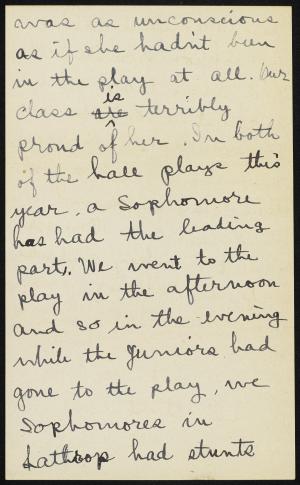 was as unconscious
as if she hadn't been
in the play at all. Our
class ~~are~~ is terribly
proud of her. In both
of the hall plays this
year, a Sophomore
has had the leading
part. We went to the
play in the afternoon
and so in the evening
while the Juniors had
gone to the play, we
Sophomores in
Lathrop had stunts